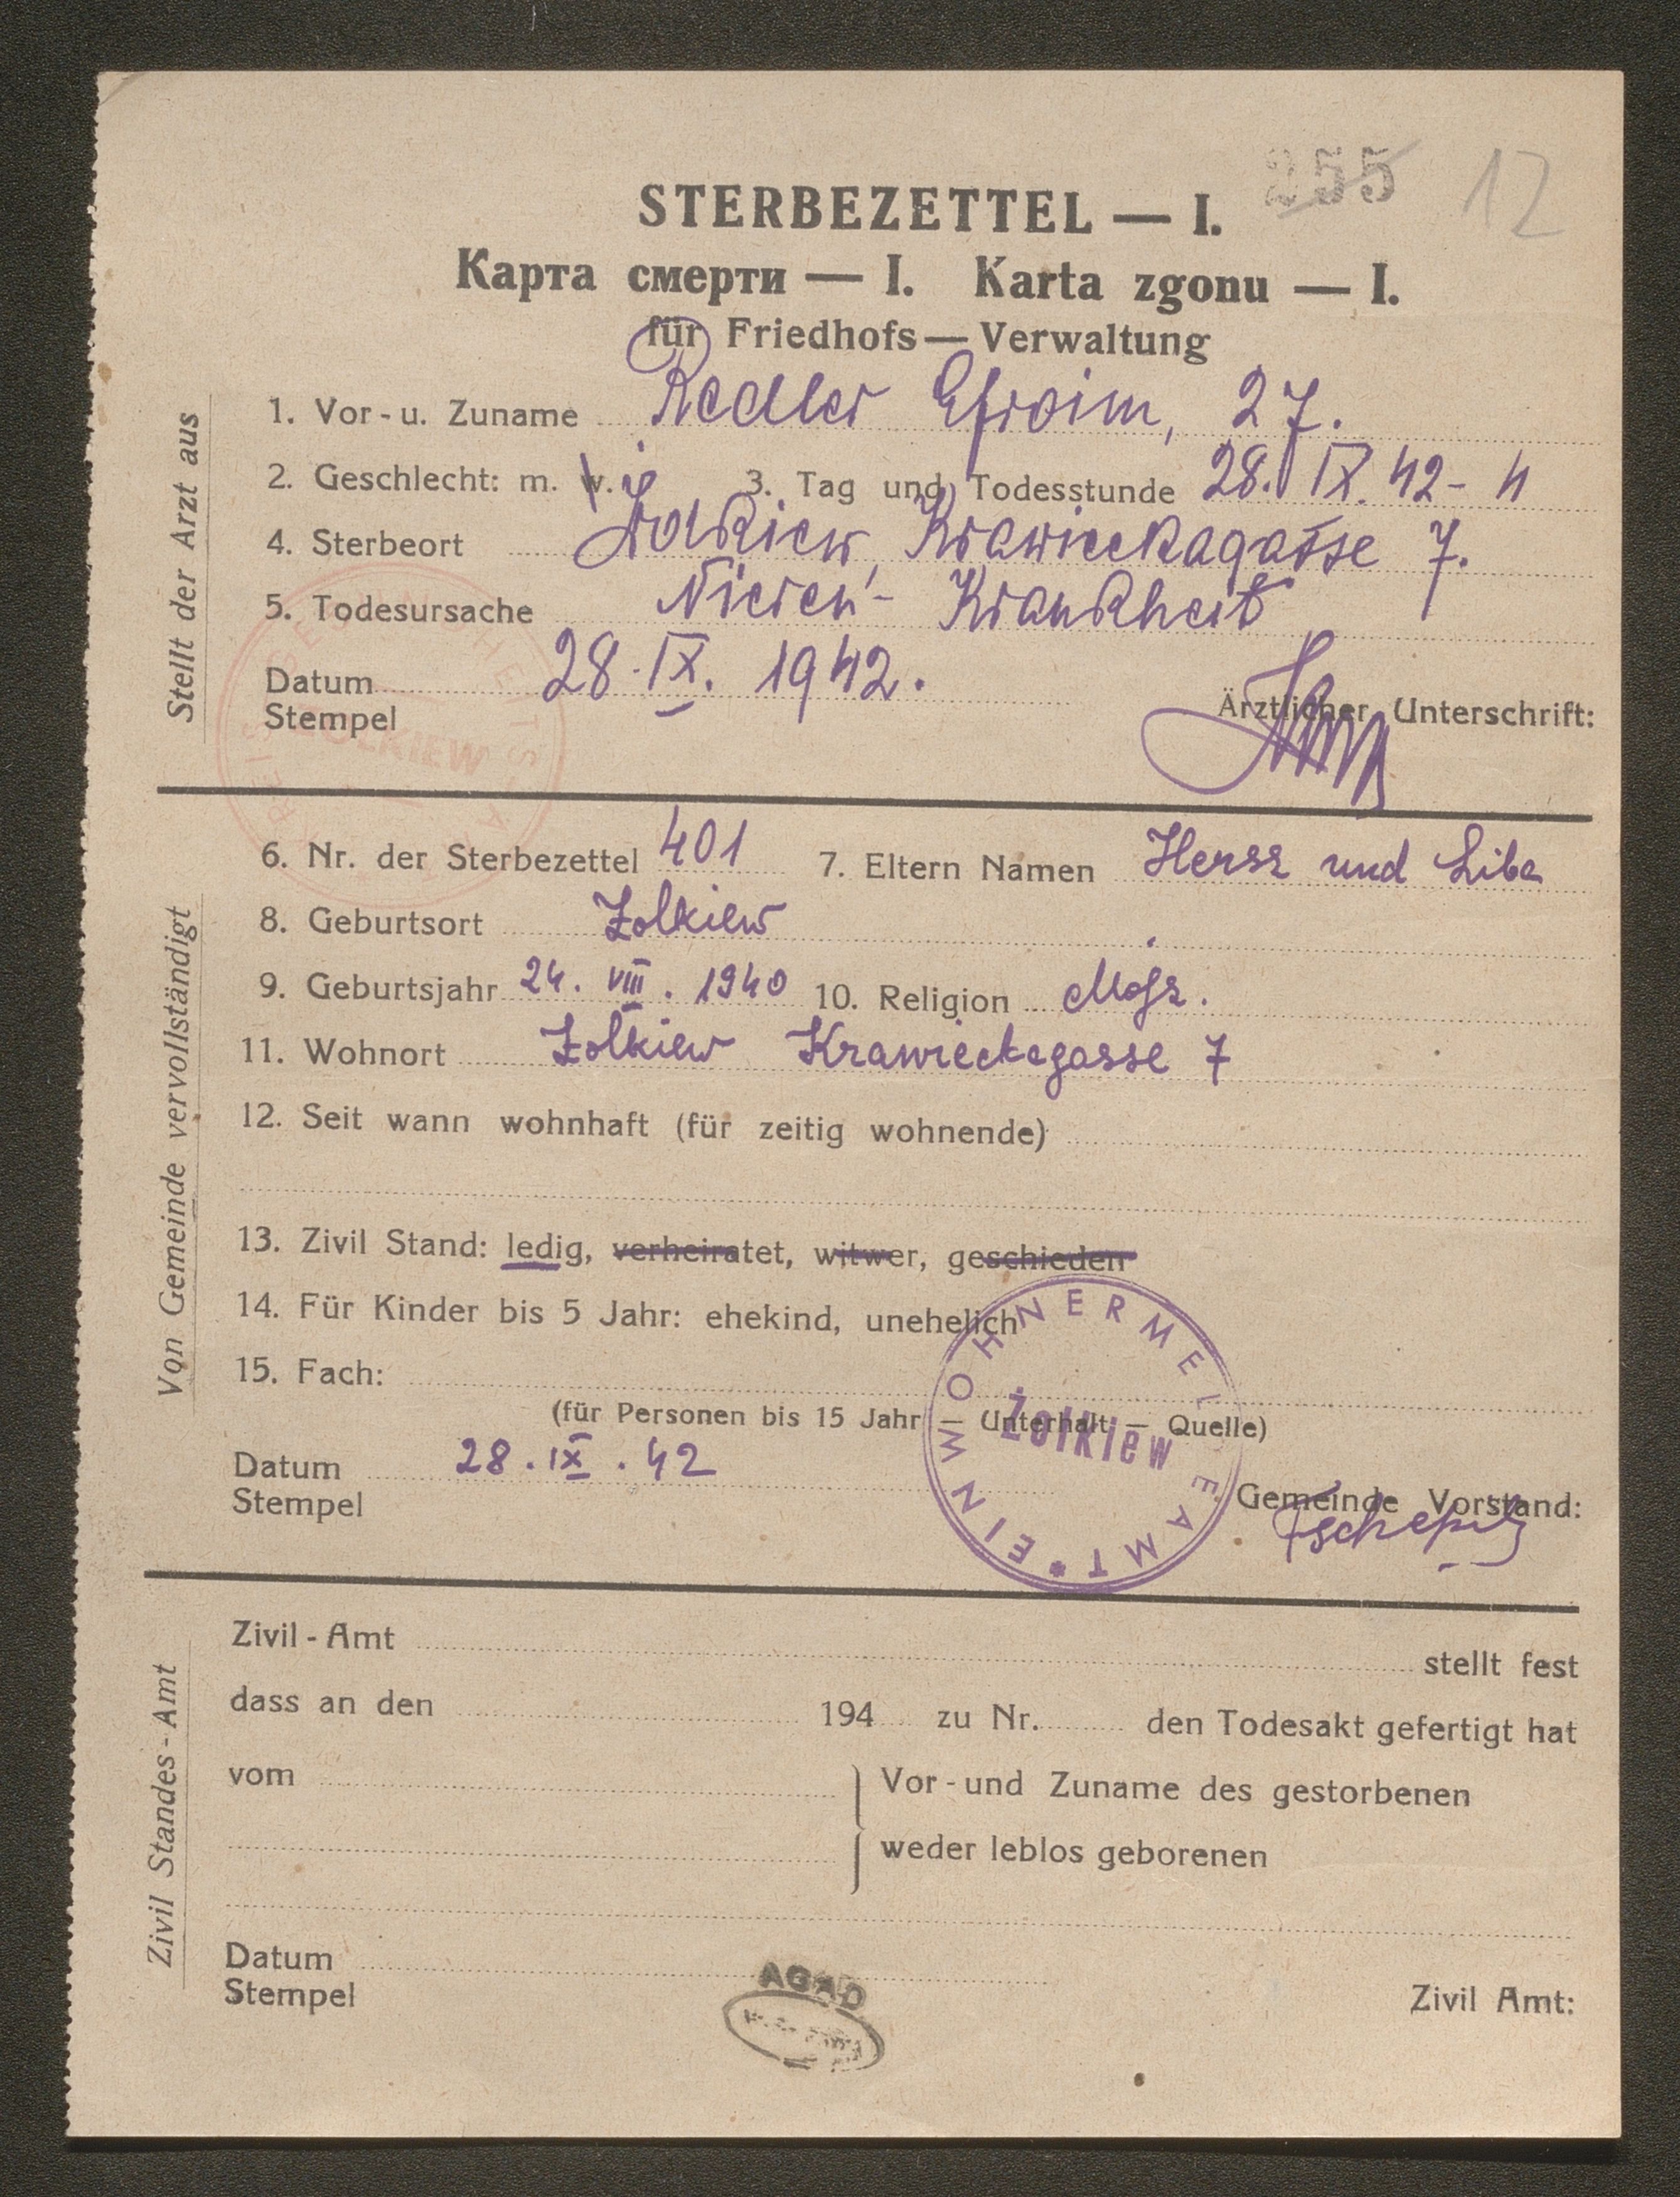 255 12
STERBEZETTEL — I.
Карта смерти — I. Karta zgonu — I.
für Friedhofs — Verwaltung
Stellt der Arzt aus
1. Vor - u. Zuname Redler Efroim, 27.
2. Geschlecht: m. w. 3. Tag und Todesstunde 28. IX. 42 - 4
4. Sterbeort Zołkiew, Krawieckagasse 7.
5. Todesursache Nieren - Krankheit
Datum 28. IX. 1942.
Stempel
Ärztlicher Unterschrift:
Von Gemeinde vervollständigt
6. Nr. der Sterbezettel 401 7. Eltern Namen Hersz und Liba
8. Geburtsort Zolkiew
9. Geburtsjahr 24. VIII. 1940 10. Religion Mojz.
11. Wohnort Zolkiew Krawieckagasse 7
12. Seit wann wohnhaft (für zeitig wohnende)
13. Zivil Stand: ledig, verheiratet, witwer, geschieden
14. Für Kinder bis 5 Jahr: ehekind, unehelich
15. Fach:
(für Personen bis 15 Jahr Unterhalt — Quelle)
EINWOHNERMELDEAMT
Żolkiew
Datum 28. IX. 42
Stempel
Gemeinde Vorstand:
Zivil Standes - Amt
Zivil - Amt stellt fest
dass an den 194 zu Nr. den Todesakt gefertigt hat
vom Vor - und Zuname des gestorbenen
weder leblos geborenen
Datum
Stempel
Zivil Amt:
AGAD